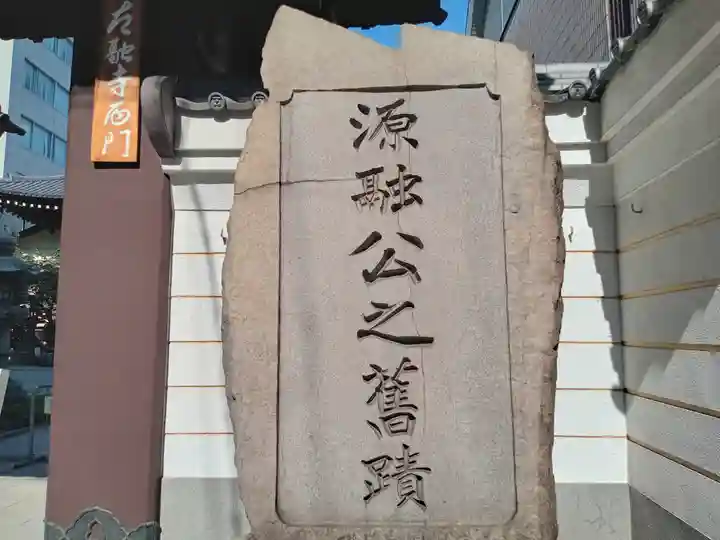 太融寺西門
源融公之舊蹟